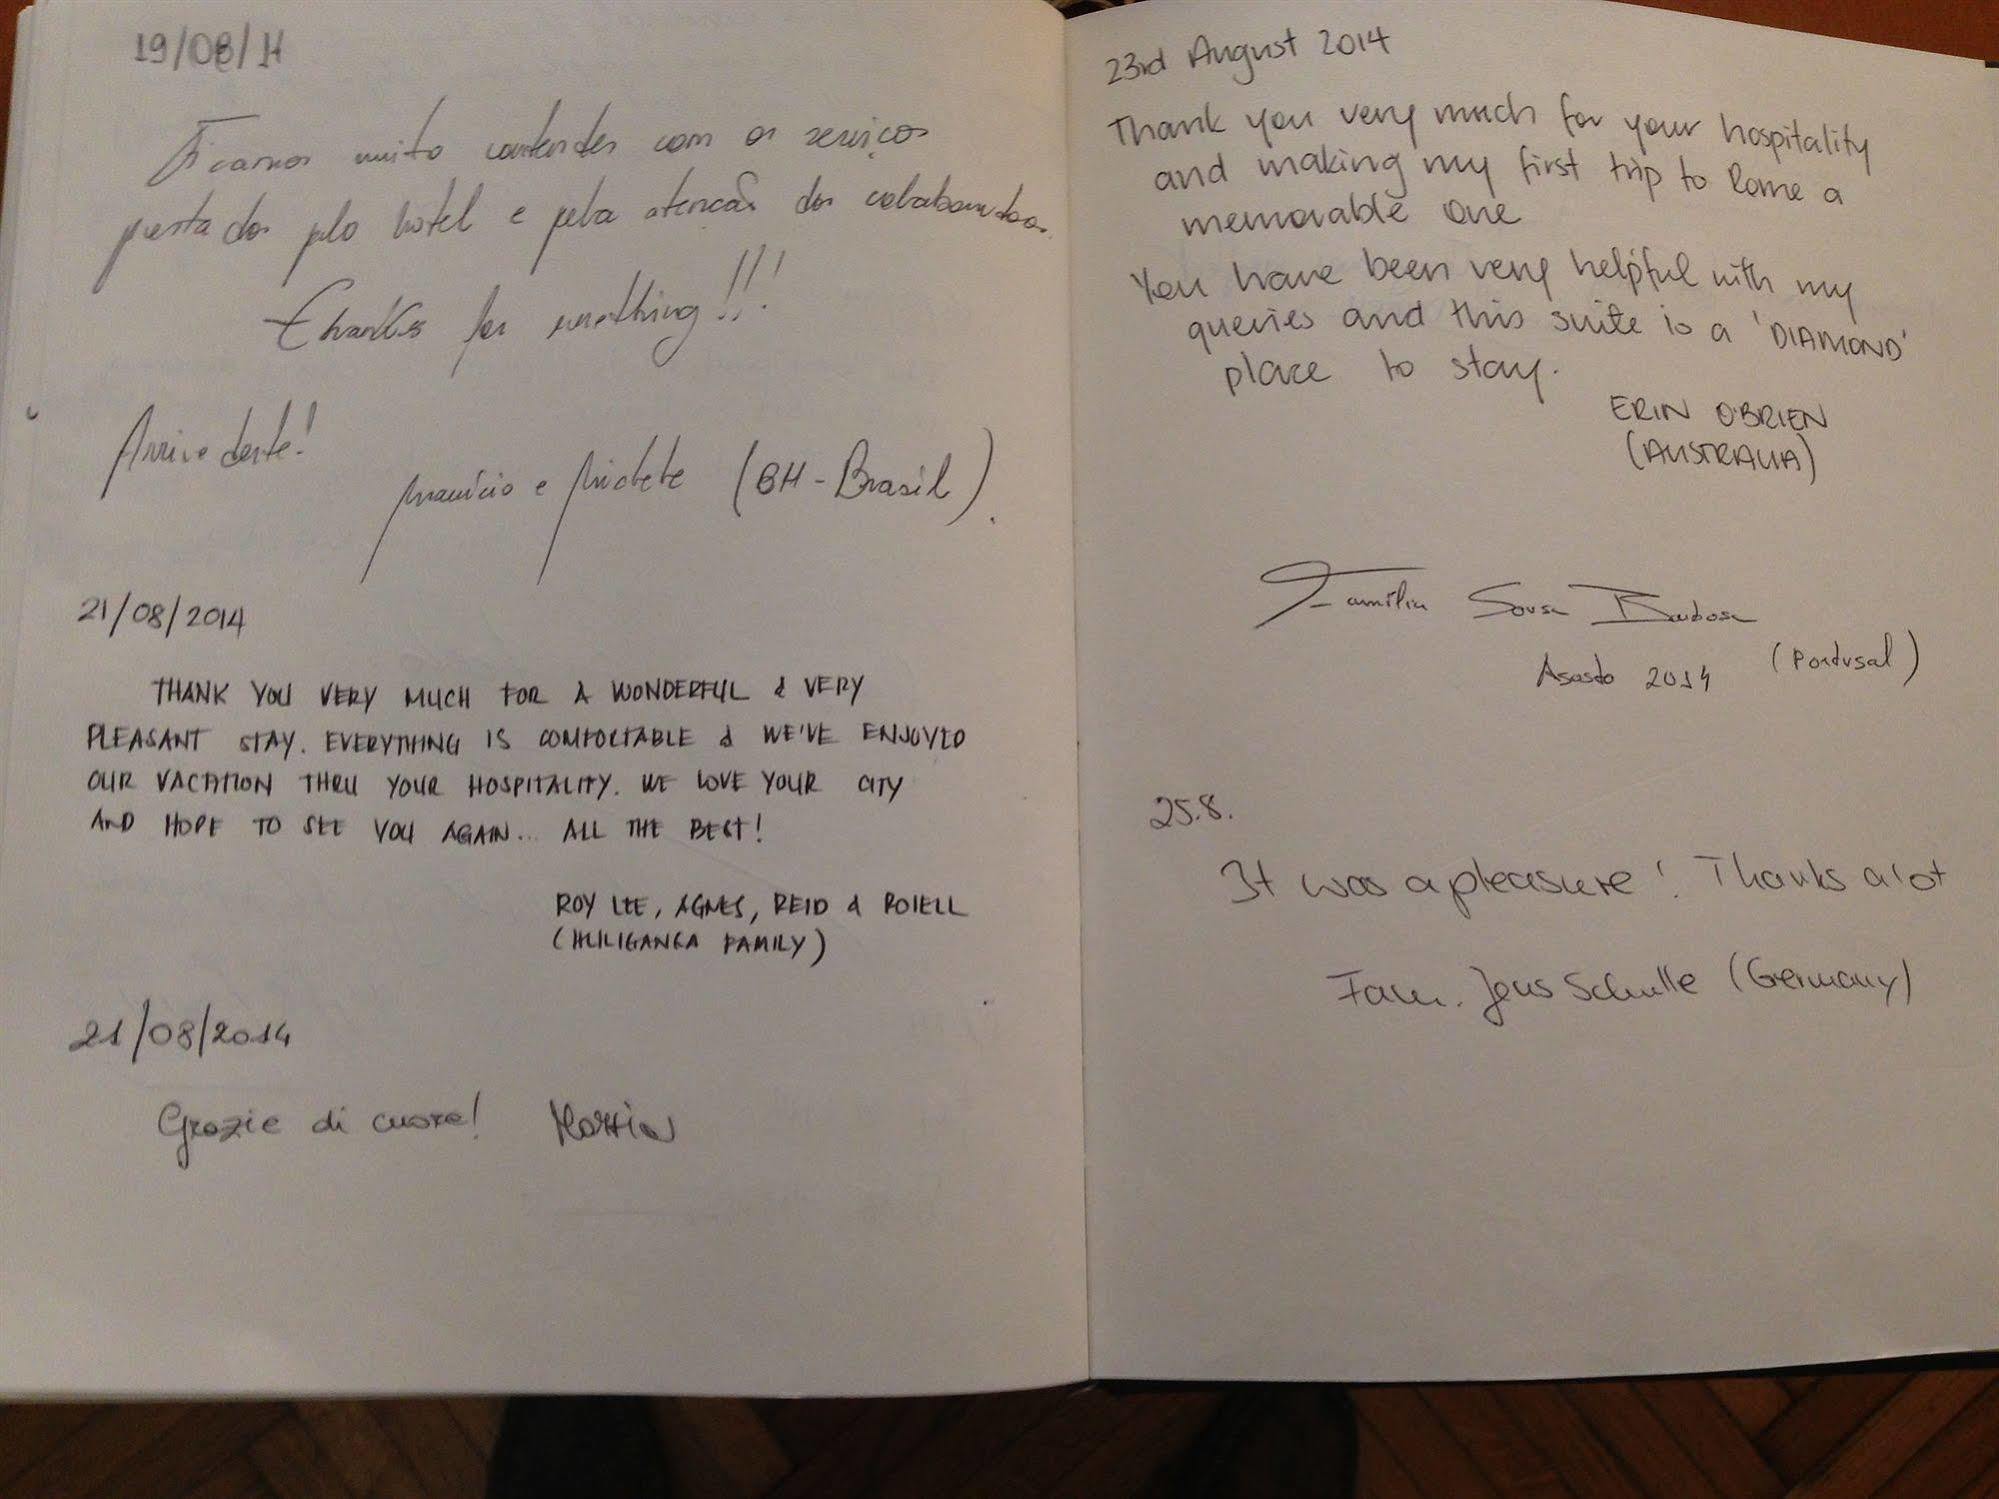 19/08/14
Ficamos muito contentes com os serviços
prestados pelo hotel e pela atenção dos colaboradores.
Thanks for something!!!
Arrivederte!
Maurício e (BH-Brasil).
21/08/2014
THANK YOU VERY MUCH FOR A WONDERFUL & VERY
PLEASANT STAY. EVERYTHING IS COMFORTABLE & WE'VE ENJOYED
OUR VACATION THRU YOUR HOSPITALITY. WE LOVE YOUR CITY
AND HOPE TO SEE YOU AGAIN... ALL THE BEST!
ROY LEE, AGNES, REID &
(HULIGANGA FAMILY)
21/08/2014
Grazie di cuore!
23rd August 2014
Thank you very much for your hospitality
and making my first trip to Rome a
memorable one
You have been very helpful with my
queries and this suite is a 'DIAMOND'
place to stay.
ERIN O'BRIEN
(AUSTRALIA)
Família Sousa Barbosa
Agosto 2014 (Portugal)
25.8.
It was a pleasure! Thanks a lot
Fam. Jens Schulle (Germany)